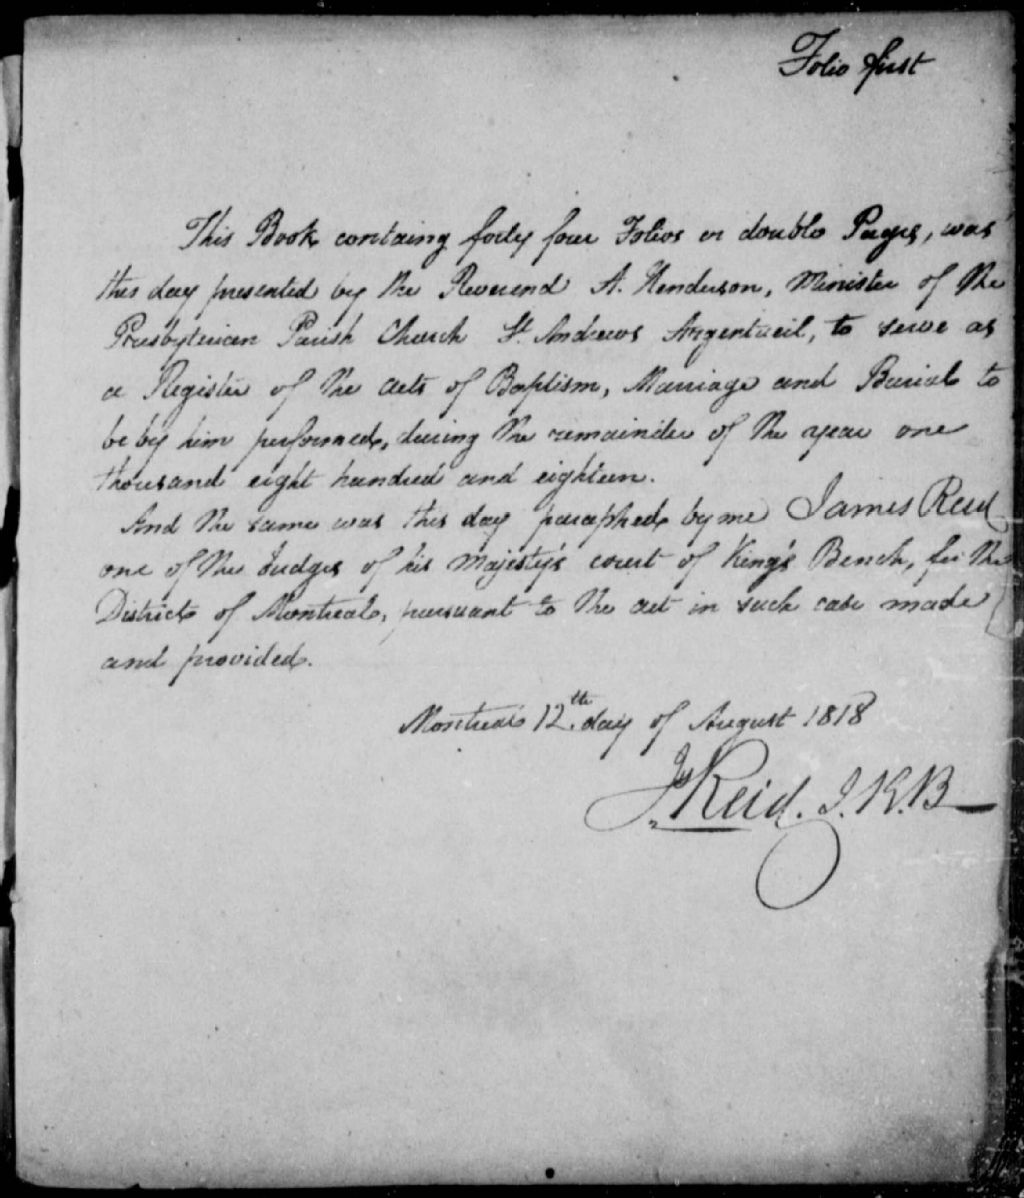 Folio first
This Book containg forty four Folios or double Pages, was
this day presented by the Reverend A. Henderson, Minister of the
Presbyterian Parish Church St. Andrews Argentueil, to serve as
a Register of the acts of Baptism, Marriage and Burial to
be by him performed, during the remainder of the year one
thousand eight hundred and eighteen.
And the same was this day paraphed by me James Reid
one of the Judges of his Majesty's court of King's Bench, for the
District of Montreal, pursuant to the act in such case made
and provided.
Montreal 12th. day of August 1818
Js Reid. J.K.B